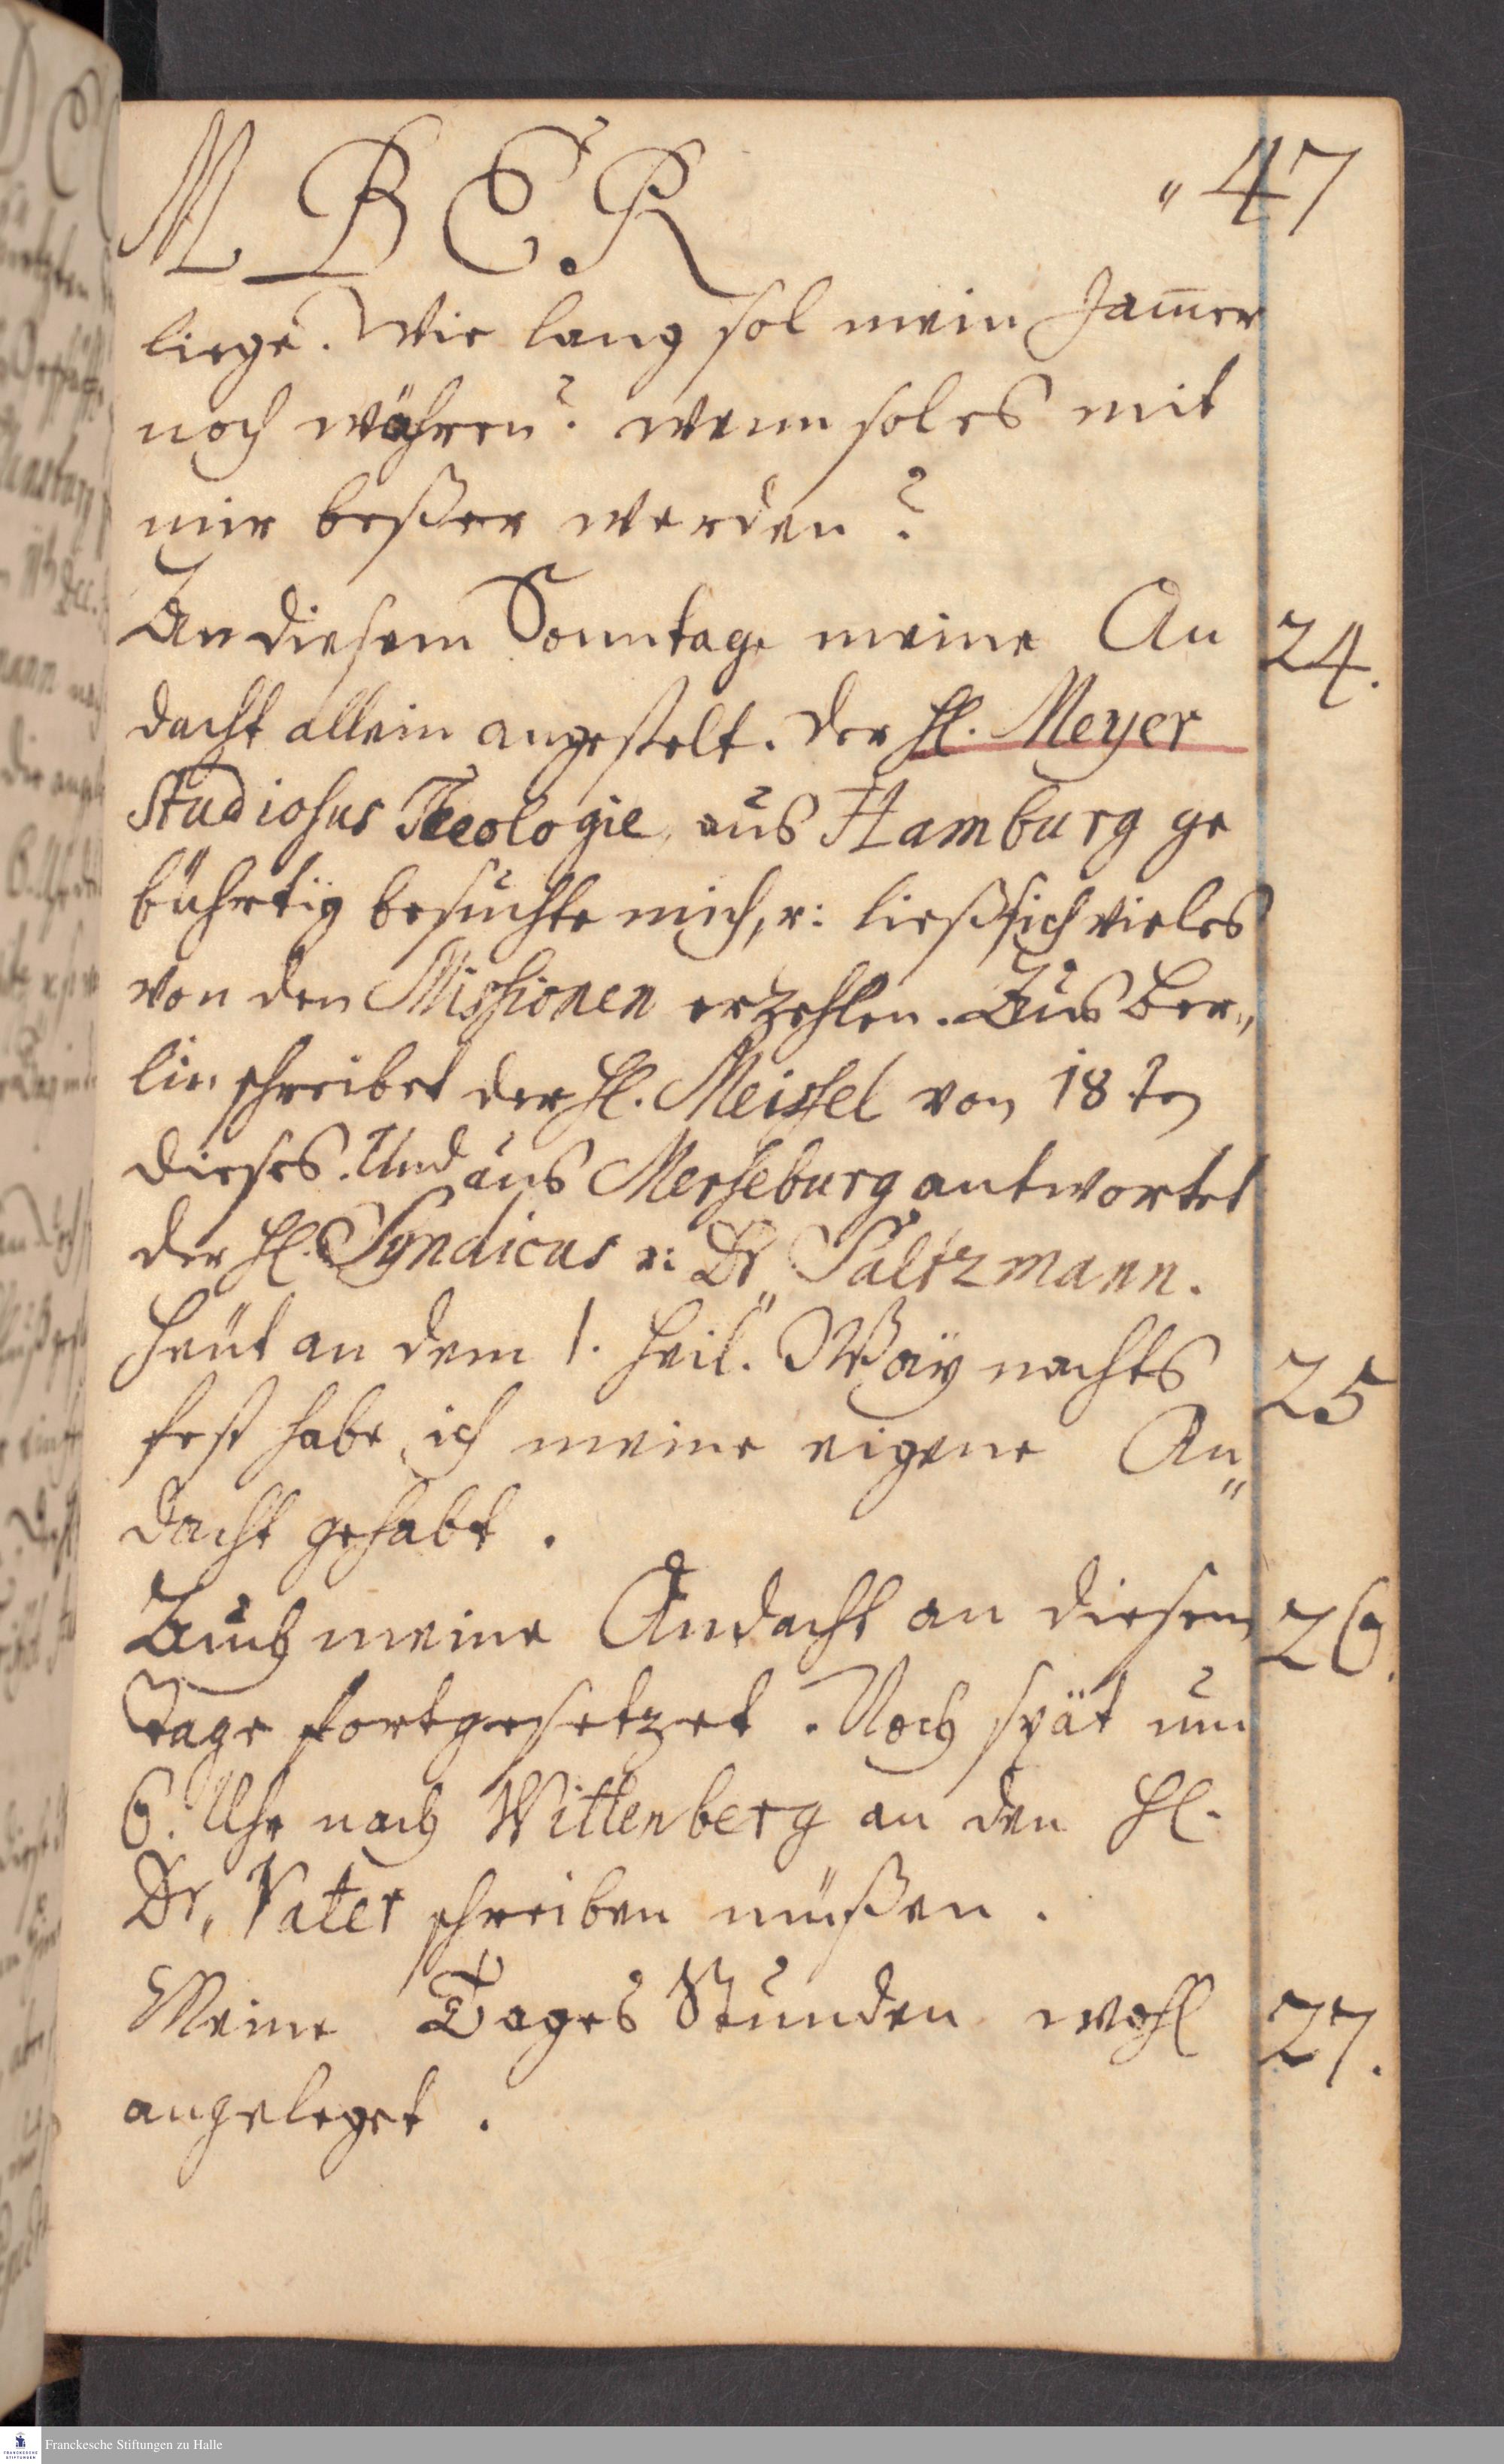 M B E R. „47
liege. Wie lang sol mein Jam̄er
noch währen? wenn sol es mit
mir beßer werden?
An diesem Sonntage meine An 24.
dacht allein angestelt. Der H. Meyer
Studiosus Teologie, aus Hamburg ge
bührtig besuchte mich, u: ließ sich vieles
von den Missionen erzehlen. Aus Ber„
lin schreibet der H. Meissel von 18ten
dieses. Und aus Merseburg antwortet
der H. Syndicus u: Dr„ Saltzmann.
Heut an dem 1. Heil. Waÿnachts 25
fest habe ich meine eigene An„
dacht gehabt.
Auch meine Andacht an diesem 26.
Tage fortgesetzet. Noch spät um
6. Uhr nach Wittenberg an den H.
Dr, Vater schreiben müßen.
Meine Tages Stunden wohl 27.
angeleget.
Franckesche Stiftungen zu Halle